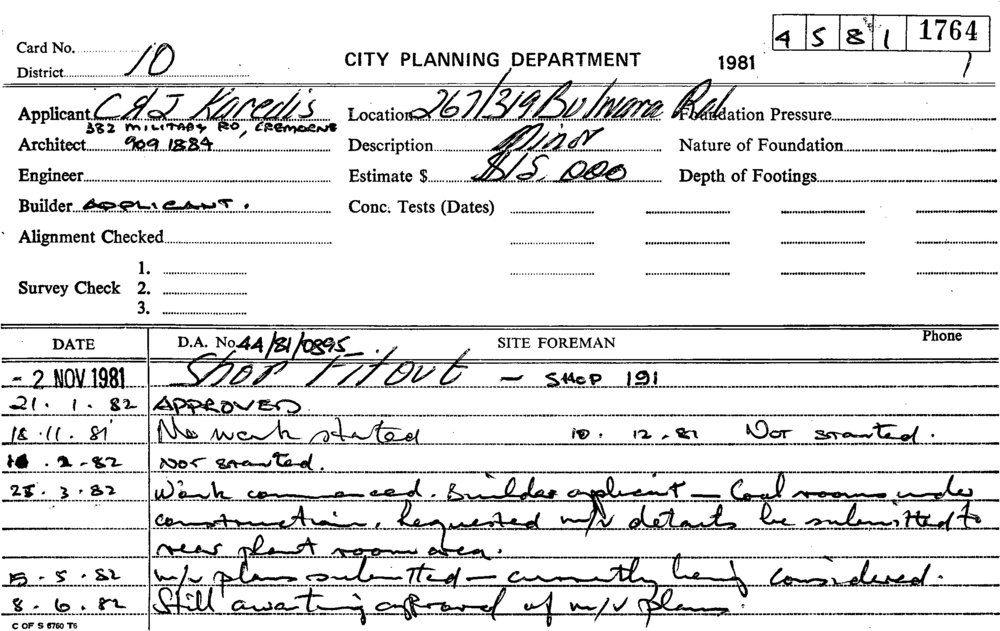 4 5 8 1 1764
Card No. 10 CITY PLANNING DEPARTMENT 1981 1
District
Applicant C & J Karedis Location 267/319 Bulwara Rd Foundation Pressure
382 MILITARY RD, CREMORNE
Architect 909 1884 Description Minor Nature of Foundation
Engineer Estimate $ $15,000 Depth of Footings
Builder APPLICANT. Conc. Tests (Dates)
Alignment Checked
1.
Survey Check 2.
3.
DATE D.A. No. 44/81/0895 SITE FOREMAN Phone
- 2 NOV 1981 Shop Fitout - SHOP 191
21. 1. 82 APPROVED
18.11.81 No work started 10. 12.81 Not started.
.2.82 Not started.
3.82 Work commenced. Builder applicant - Cool rooms under
construction. Requested m/v details be submitted to
rear plant room area.
5.82 m/v plans submitted - currently being considered.
8.6.82 Still awaiting approval of m/v plans.
C OF S 6760 T6